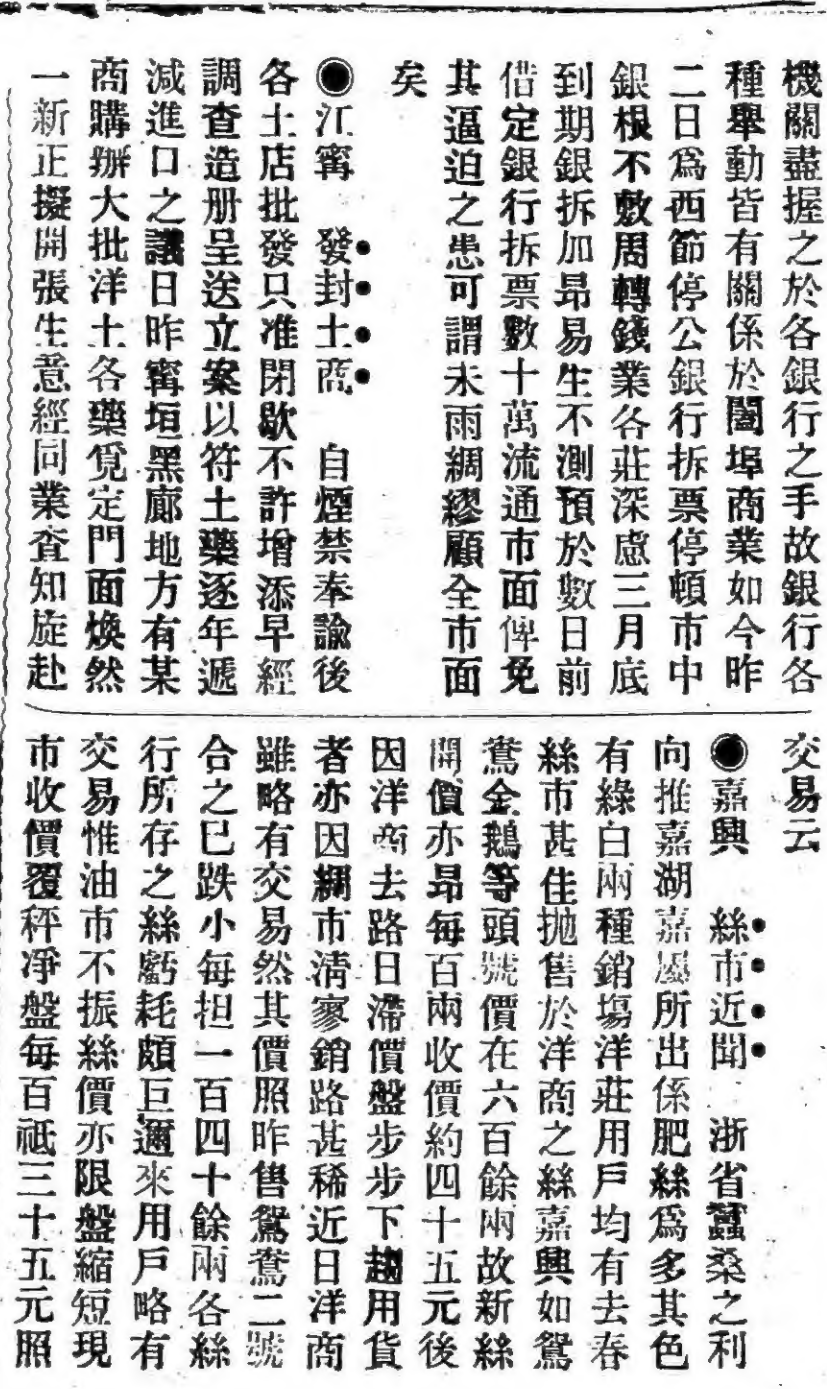 機關盡握之於各銀行之手故銀行各
種舉動皆有關係於闔埠商業如今昨
二日爲西節停公銀行拆票停頓市中
銀根不敷周轉錢業各莊深慮三月底
到期銀拆加昂易生不測預於數日前
借定銀行拆票數十萬流通市面俾免
其逼迫之患可謂未雨綢繆顧全市面
矣
◉江寗　發封土商　自煙禁奉諭後
各土店批發只准閉歇不許增添早經
調查造册呈送立案以符土藥逐年遞
減進口之議日昨寗垣黑廊地方有某
商購辦大批洋土各藥覓定門面煥然
一新正擬開張生意經同業查知旋赴
交易云
◉嘉興　絲市近聞　浙省蠶桑之利
向推嘉湖嘉屬所出係肥絲爲多其色
有綠白兩種銷塲洋莊用戶均有去春
絲市甚佳拋售於洋商之絲嘉興如鴛
鴦金鵝等頭號價在六百餘兩故新絲
開價亦昻每百兩收價約四十五元後
因洋商去路日滯價盤步步下趨用貨
者亦因綢市淸寥銷路甚稀近日洋商
雖略有交易然其價照昨售鴛鴦二號
合之已跌小每担一百四十餘兩各絲
行所存之絲虧耗頗巨邇來用戶略有
交易惟油市不振絲價亦限盤縮短現
市收價覆秤凈盤每百祗三十五元照